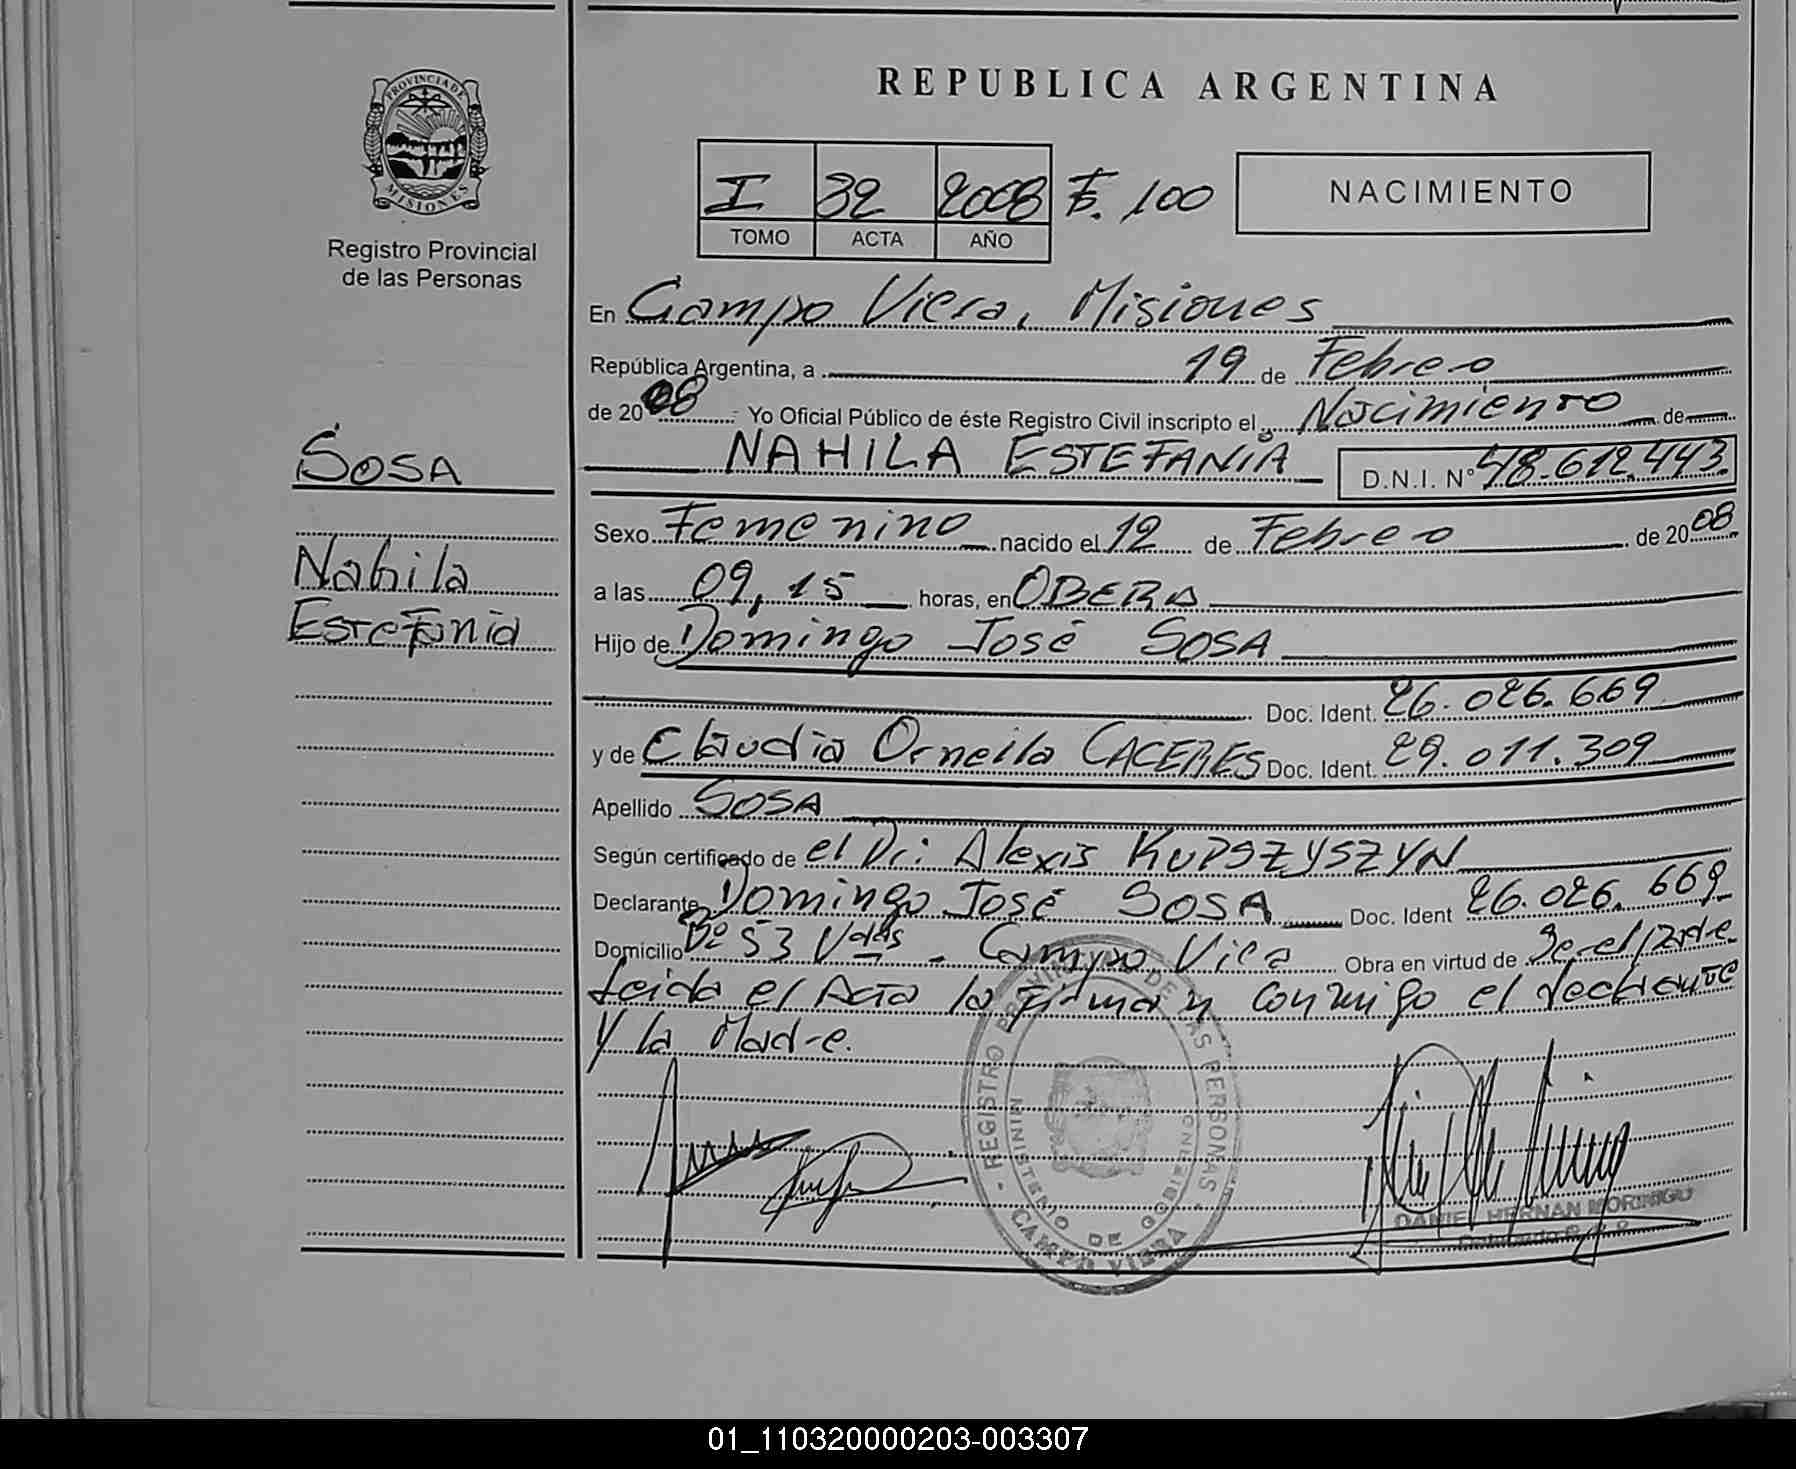 PROVINCIA DE
MISIONES
Registro Provincial
de las Personas
SOSA
Nahila
Estefanía
REPUBLICA ARGENTINA
I 32 2008 F. 100
TOMO ACTA AÑO
NACIMIENTO
En Campo Viera, Misiones
República Argentina, a 19 de Febrero
de 2008 Yo Oficial Público de éste Registro Civil inscripto el Nacimiento de
NAHILA ESTEFANÍA D.N.I. N° 48.612.443
Sexo Femenino nacido el 12 de Febrero de 2008
a las 09,15 horas, en OBERA
Hijo de Domingo José SOSA
Doc. Ident. 26.026.669
y de Claudia Ornella CACERES Doc. Ident. 29.011.309
Apellido SOSA
Según certificado de el Dr: Alexis KUPSZYSZYN
Declarante Domingo José SOSA Doc. Ident 26.026.669
Domicilio Bº 53 Vdas - Campo Viera Obra en virtud de Ser el padre
Leida el Acta la firman conmigo el declarante
y la Madre.
REGISTRO PROVINCIAL DE LAS PERSONAS
MINISTERIO DE GOBIERNO
CAMPO VIERA
DANIEL HERNAN MORINIGO
01_110320000203-003307